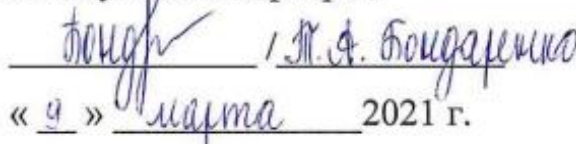 Бонд / Т. А. Бондаренко
« 9 » марта 2021 г.